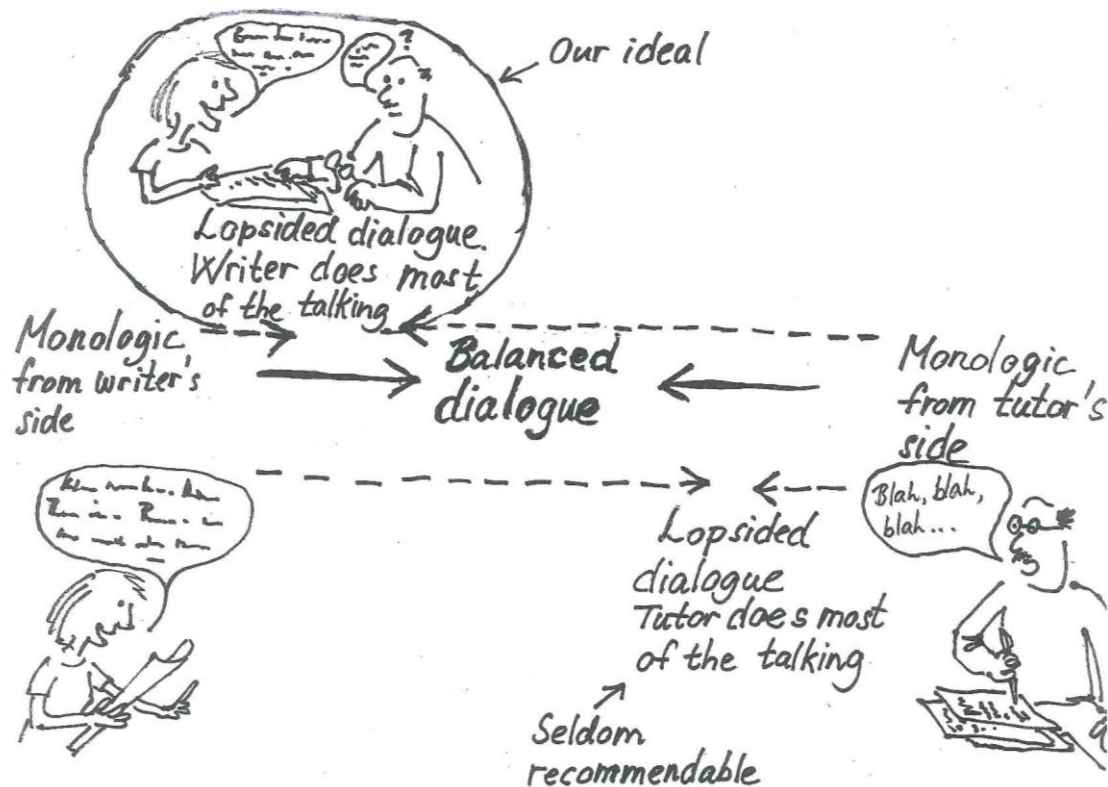 ?
Our ideal
Lopsided dialogue.
Writer does most
of the talking
Monologic
from writer's
side
Balanced
dialogue
Monologic
from tutor's
side
Blah, blah,
blah...
Lopsided
dialogue
Tutor does most
of the talking
Seldom
recommendable